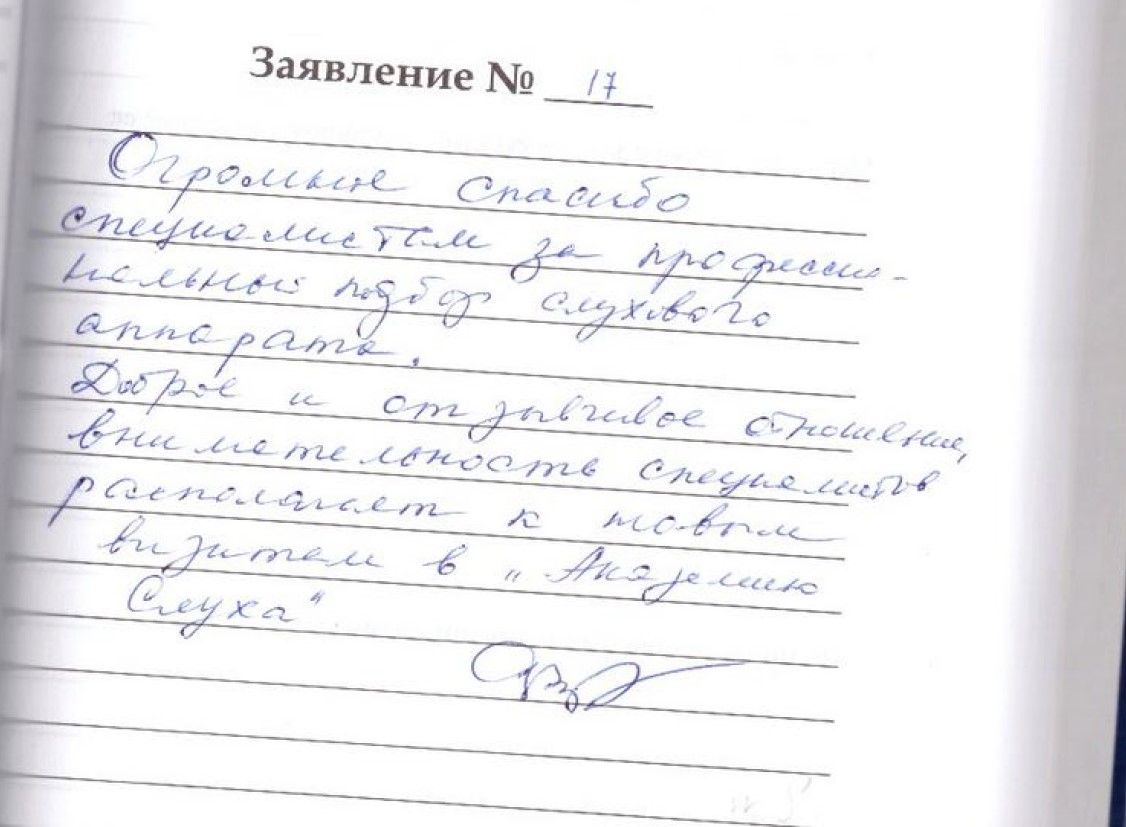 Заявление № 17
Огромное спасибо
специалистам за професси-
нальный подбор слухового
аппарата.
Доброе и отзывчивое отношение,
внимательность специалистов
располагает к новым
визитам в „Академию
Слуха“